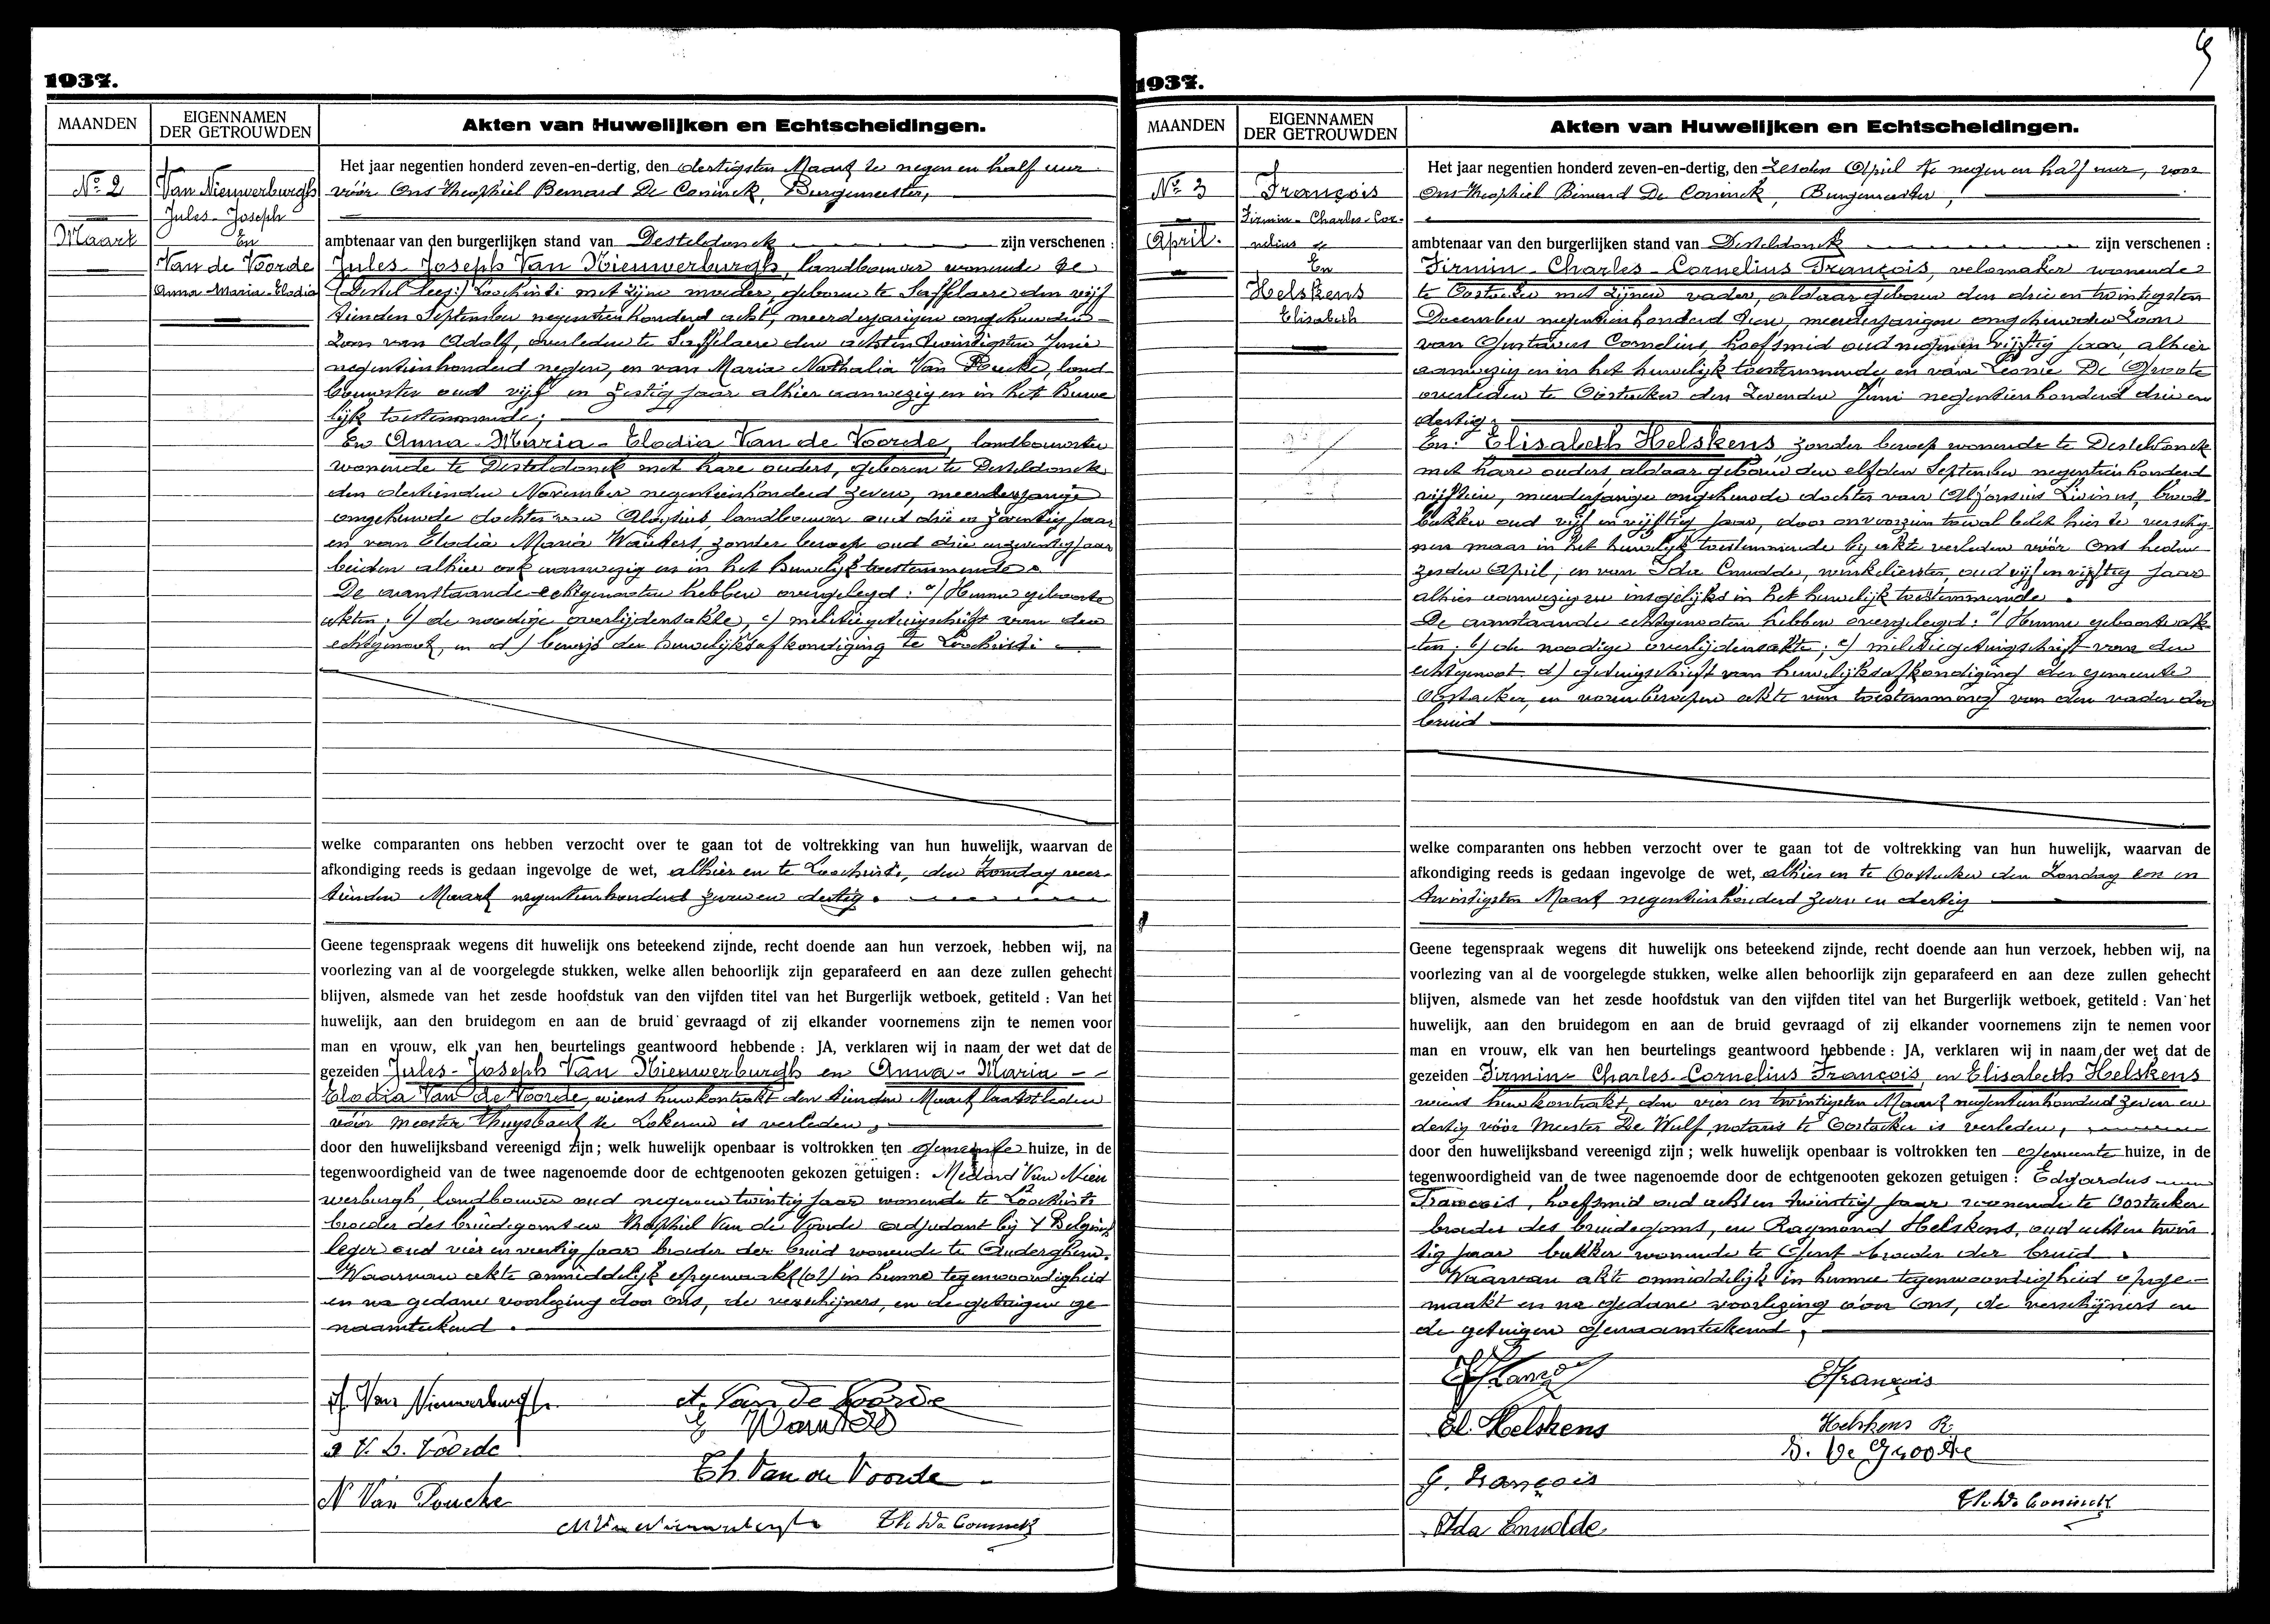 1937.
MAANDEN
EIGENNAMEN
DER GETROUWDEN
Akten van Huwelijken en Echtscheidingen.
No 2
Maart
Van Nieuwerburgh
Jules-Joseph
En
Van de Voorde
Anna-Maria-Elodia
Het jaar negentien honderd zeven-en-dertig, den dertigsten Maart te negen en half uur
vóór Ons Theophiel Bernard De Coninck, Burgemeester,
ambtenaar van den burgerlijken stand van Desteldonck zijn verschenen :
Jules-Joseph Van Nieuwerburgh, landbouwer wonende te
(Destel lees:) Loochristi met zijne moeder, geboren te Saffelaere den vijf
tienden September negentienhonderd acht, meerderjarigen ongehuwden
zoon van Adolf, overleden te Saffelaere den achtentwintigsten Junie
negentienhonderd negen, en van Maria Nathalia Van Poucke, land
bouwster oud vijf en zestig jaar alhier aanwezig en in het huwe
lijk toestemmende;
En Anna-Maria-Elodia Van de Voorde, landbouwster
wonende te Desteldonck met hare ouders, geboren te Desteldonck
den dertienden November negentienhonderd zeven, meerderjarige
ongehuwde dochter van Aloysius, landbouwer oud drie en zeventig jaar
en van Elodia Maria Wauters, zonder beroep oud drie en zeventig jaar
beiden alhier ook aanwezig en in het huwelijk toestemmende.
De aanstaande echtgenooten hebben overgelegd : a/ Hunne geboorte
akten; b) de noodige overlijdensakte, c) militiegetuigschrift van den
echtgenoot, en d) bewijs der huwelijksafkondiging te Loochristi
welke comparanten ons hebben verzocht over te gaan tot de voltrekking van hun huwelijk, waarvan de
afkondiging reeds is gedaan ingevolge de wet, alhier en te Loochristi, den Zondag veer-
tienden Maart negentienhonderd zeven en dertig.
Geene tegenspraak wegens dit huwelijk ons beteekend zijnde, recht doende aan hun verzoek, hebben wij, na
voorlezing van al de voorgelegde stukken, welke allen behoorlijk zijn geparafeerd en aan deze zullen gehecht
blijven, alsmede van het zesde hoofdstuk van den vijfden titel van het Burgerlijk wetboek, getiteld : Van het
huwelijk, aan den bruidegom en aan de bruid gevraagd of zij elkander voornemens zijn te nemen voor
man en vrouw, elk van hen beurtelings geantwoord hebbende : JA, verklaren wij in naam der wet dat de
gezeiden Jules-Joseph Van Nieuwerburgh en Anna-Maria--
Elodia Van de Voorde, wiens huwkontrakt den tienden Maart laatstleden
vóór meester Thuysbaert te Lokeren is verleden,
door den huwelijksband vereenigd zijn ; welk huwelijk openbaar is voltrokken ten gemeente huize, in de
tegenwoordigheid van de twee nagenoemde door de echtgenooten gekozen getuigen : Medard Van Nieu
werburgh, landbouwer oud negenentwintig jaar wonende te Loochristi
broeder des bruidegoms en Theophiel Van de Voorde adjudant bij 't Belgisch
leger oud vier en veertig jaar broeder der bruid wonende te Auderghem.
Waarvan akte onmiddelijk opgemaakt (at) in hunne tegenwoordigheid
en na gedane voorlezing door Ons, de verschijners, en de getuigen ge-
naamteekend.
J. Van Nieuwerburgh
A. Van de Voorde
E Wauters
a V. D. Voorde
Th Van de Voorde
N Van Poucke
M Van Nieuwerburgh
Th. De Coninck
1937.
MAANDEN
EIGENNAMEN
DER GETROUWDEN
Akten van Huwelijken en Echtscheidingen.
No 3
April.
François
Firmin-Charles-Cor-
nelius
En
Helskens
Elisabeth
Het jaar negentien honderd zeven-en-dertig, den zesden April te negen en half uur, voor
Ons Theophiel Bernard De Coninck, Burgemeester,
ambtenaar van den burgerlijken stand van Desteldonck zijn verschenen :
Firmin-Charles-Cornelius François, velomaker wonende
te Oostacker met zijnen vader, aldaar geboren den drie en twintigsten
December negentienhonderd tien, meerderjarigen ongehuwden zoon
van Gustavus Cornelius, hoefsmid oud negen en vijftig jaar, alhier
aanwezig en in het huwelijk toestemmende en van Leonie De Groote
overleden te Oostacker den zevenden Juni negentienhonderd drie en
dertig.
En: Elisabeth Helskens zonder beroep wonende te Desteldonck
met hare ouders, aldaar geboren den elfden September negentienhonderd
vijftien, meerderjarige ongehuwde dochter van Alfonsius Livinus, brood
bakker oud vijf en vijftig jaar, door onvoorzien toeval belet hier te verschij-
nen maar in het huwelijk toestemmende bij akte verleden vóór Ons heden
zesden April, en van Ida Cnudde, winkelierster, oud vijf en vijftig jaar
alhier aanwezig en insgelijks in het huwelijk toestemmende.
De aanstaande echtgenooten hebben overgelegd : a/ Hunne geboorteak-
ten; b) de noodige overlijdensakte; c) militiegetuigschrift van den
echtgenoot d) getuigschrift van huwelijksafkondiging der gemeente
Oostacker, en voornberoepen akte van toestemming van den vader der
bruid
welke comparanten ons hebben verzocht over te gaan tot de voltrekking van hun huwelijk, waarvan de
afkondiging reeds is gedaan ingevolge de wet, alhier en te Oostacker den Zondag een en
twintigsten Maart negentienhonderd zeven en dertig
Geene tegenspraak wegens dit huwelijk ons beteekend zijnde, recht doende aan hun verzoek, hebben wij, na
voorlezing van al de voorgelegde stukken, welke allen behoorlijk zijn geparafeerd en aan deze zullen gehecht
blijven, alsmede van het zesde hoofdstuk van den vijfden titel van het Burgerlijk wetboek, getiteld : Van het
huwelijk, aan den bruidegom en aan de bruid gevraagd of zij elkander voornemens zijn te nemen voor
man en vrouw, elk van hen beurtelings geantwoord hebbende : JA, verklaren wij in naam der wet dat de
gezeiden Firmin-Charles-Cornelius François, en Elisabeth Helskens
wiens huwkontrakt den vier en twintigsten Maart negentienhonderd zeven en
dertig vóór Meester De Wulf, notaris te Oostacker is verleden,
door den huwelijksband vereenigd zijn ; welk huwelijk openbaar is voltrokken ten gemeente huize, in de
tegenwoordigheid van de twee nagenoemde door de echtgenooten gekozen getuigen : Edgardus
François, hoefsmid oud acht en twintig jaar wonende te Oostacker
broeder des bruidegoms, en Raymond Helskens, oud acht en twin
tig jaar bakker wonende te Gent broeder der bruid.
Waarvan akte onmiddelijk in hunne tegenwoordigheid opge-
maakt en na gedane voorlezing door Ons, de verschijners en
de getuigen genaamteekend.
E François
El. Helskens
Helskens R.
D. De Groote
G. François
Th. De Coninck
Ida Cnudde